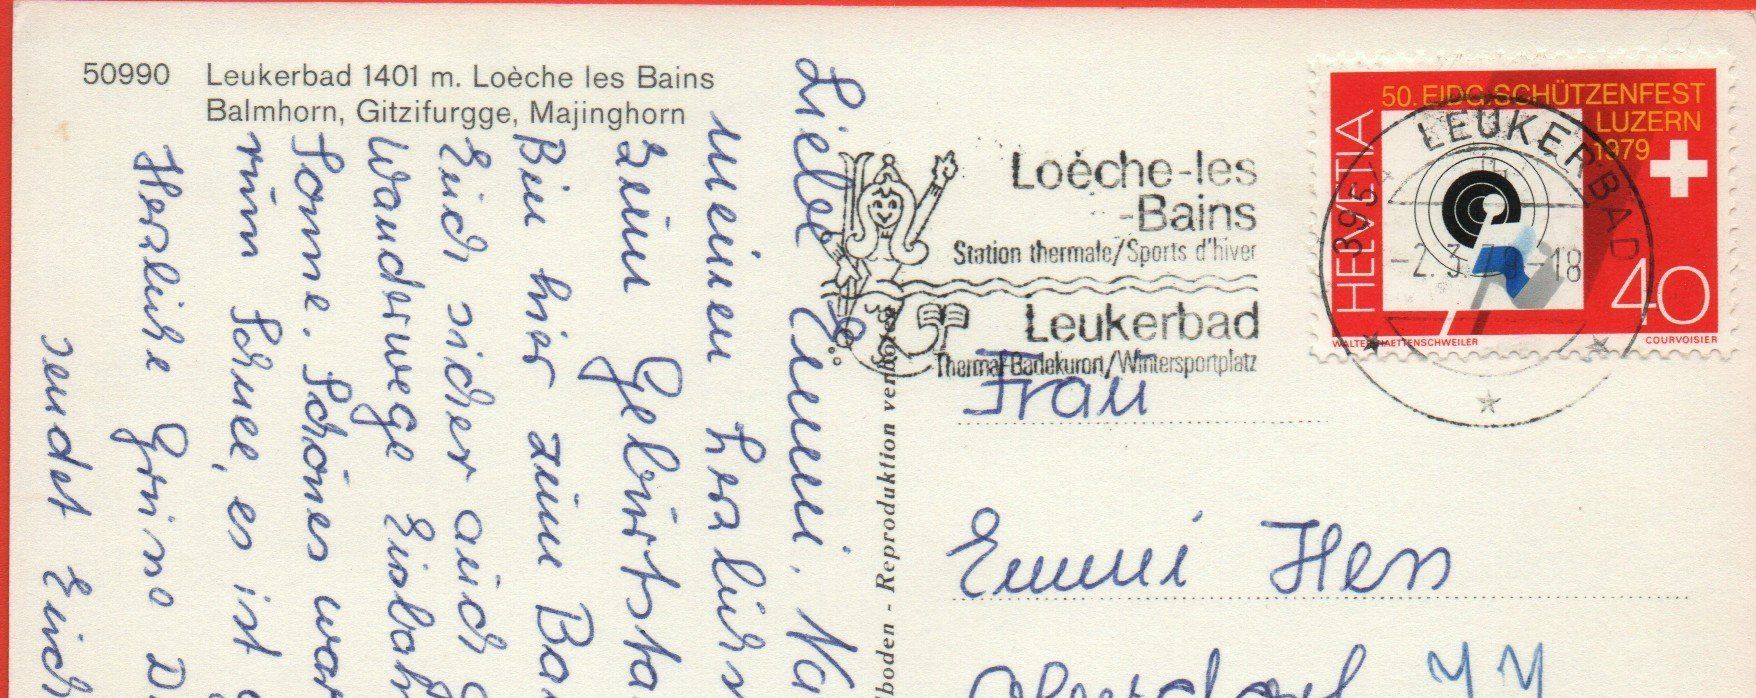 50990 Leukerbad 1401 m. Loèche les Bains
Balmhorn, Gitzifurgge, Majinghorn
Liebe Emmi.
meinen herzlichs
zum Geburtsta
Bin hier zum Ba
Euch sicher auch g
Wanderwege Eisbah
Sonne. Schönes war
rum Schnee, es ist
Herzliche Grüsse
sendet Euch
boden - Reproduktion verboten
Loèche-les
-Bains
Station thermale/Sports d'hiver
Leukerbad
Thermal-Badekuron/Wintersportplatz
50. EIDG. SCHÜTZENFEST
LUZERN
1979
HELVETIA
40
WALTER HAETTENSCHWEILER COURVOISIER
3954 LEUKERBAD
-2. 3. 79-18
Frau
Emmi Hess